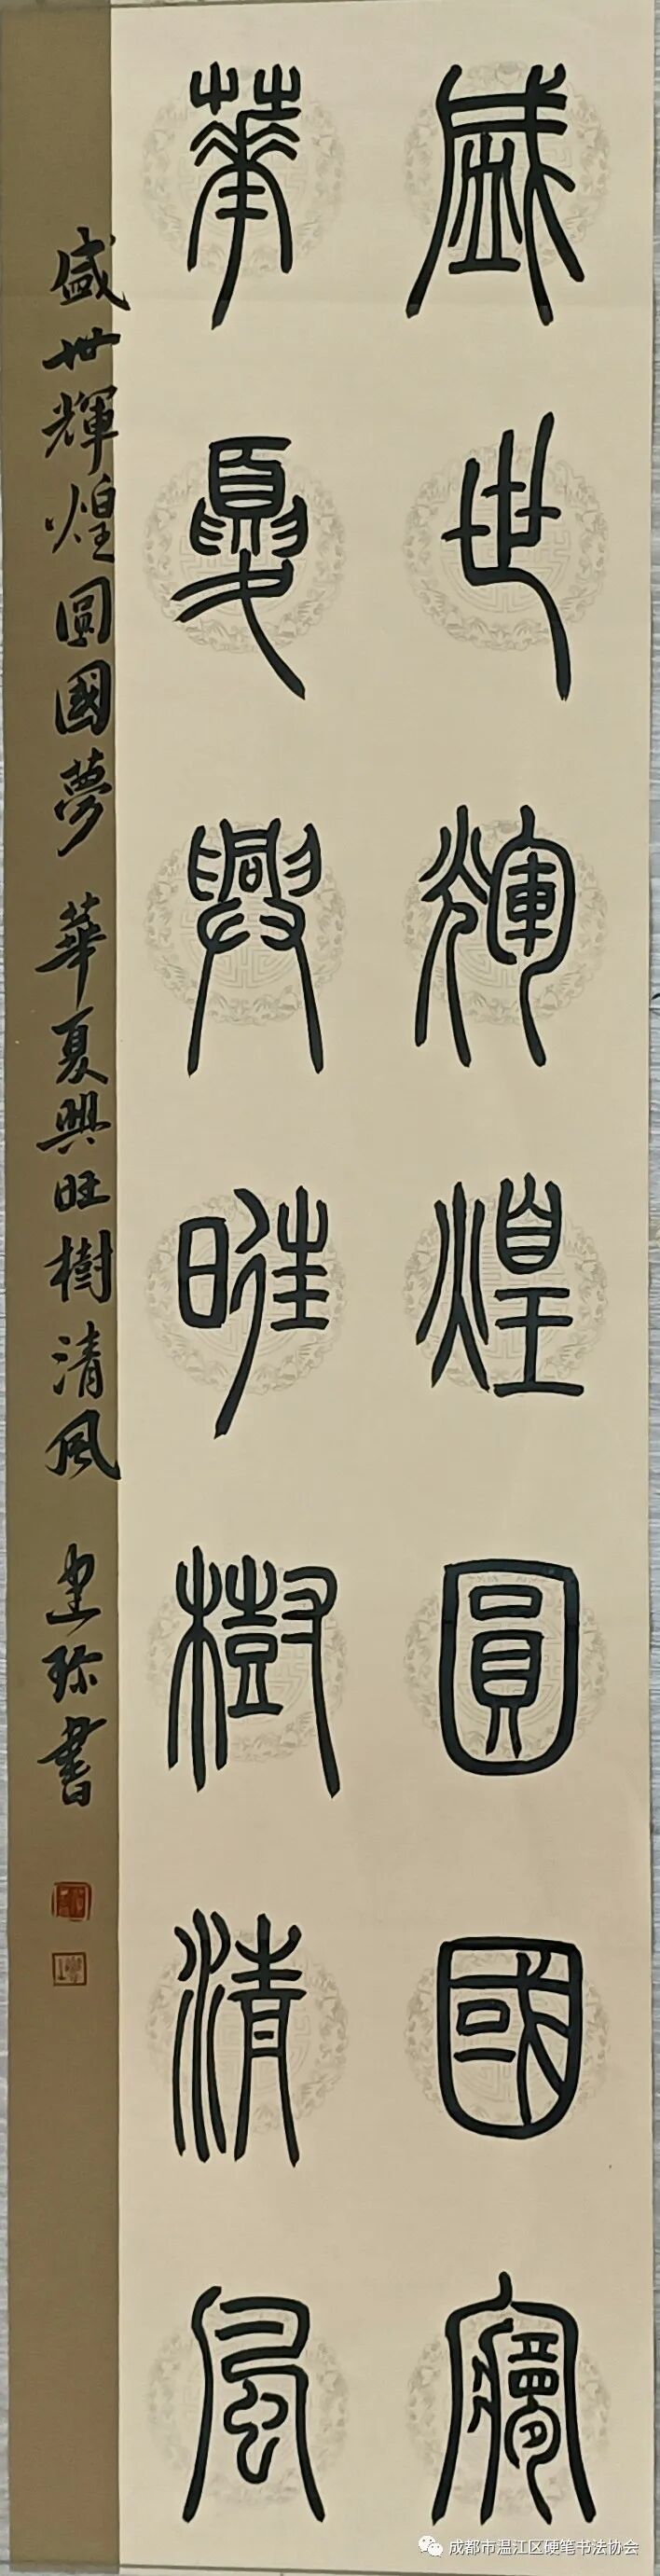 盛世輝煌圓國夢
華夏興旺樹清風
盛世輝煌圓國夢 華夏興旺樹清風 建珍書
成都市温江区硬笔书法协会